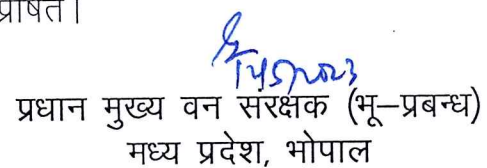 प्रेषित।
प्रधान मुख्य वन संरक्षक (भू–प्रबन्ध)
मध्य प्रदेश, भोपाल